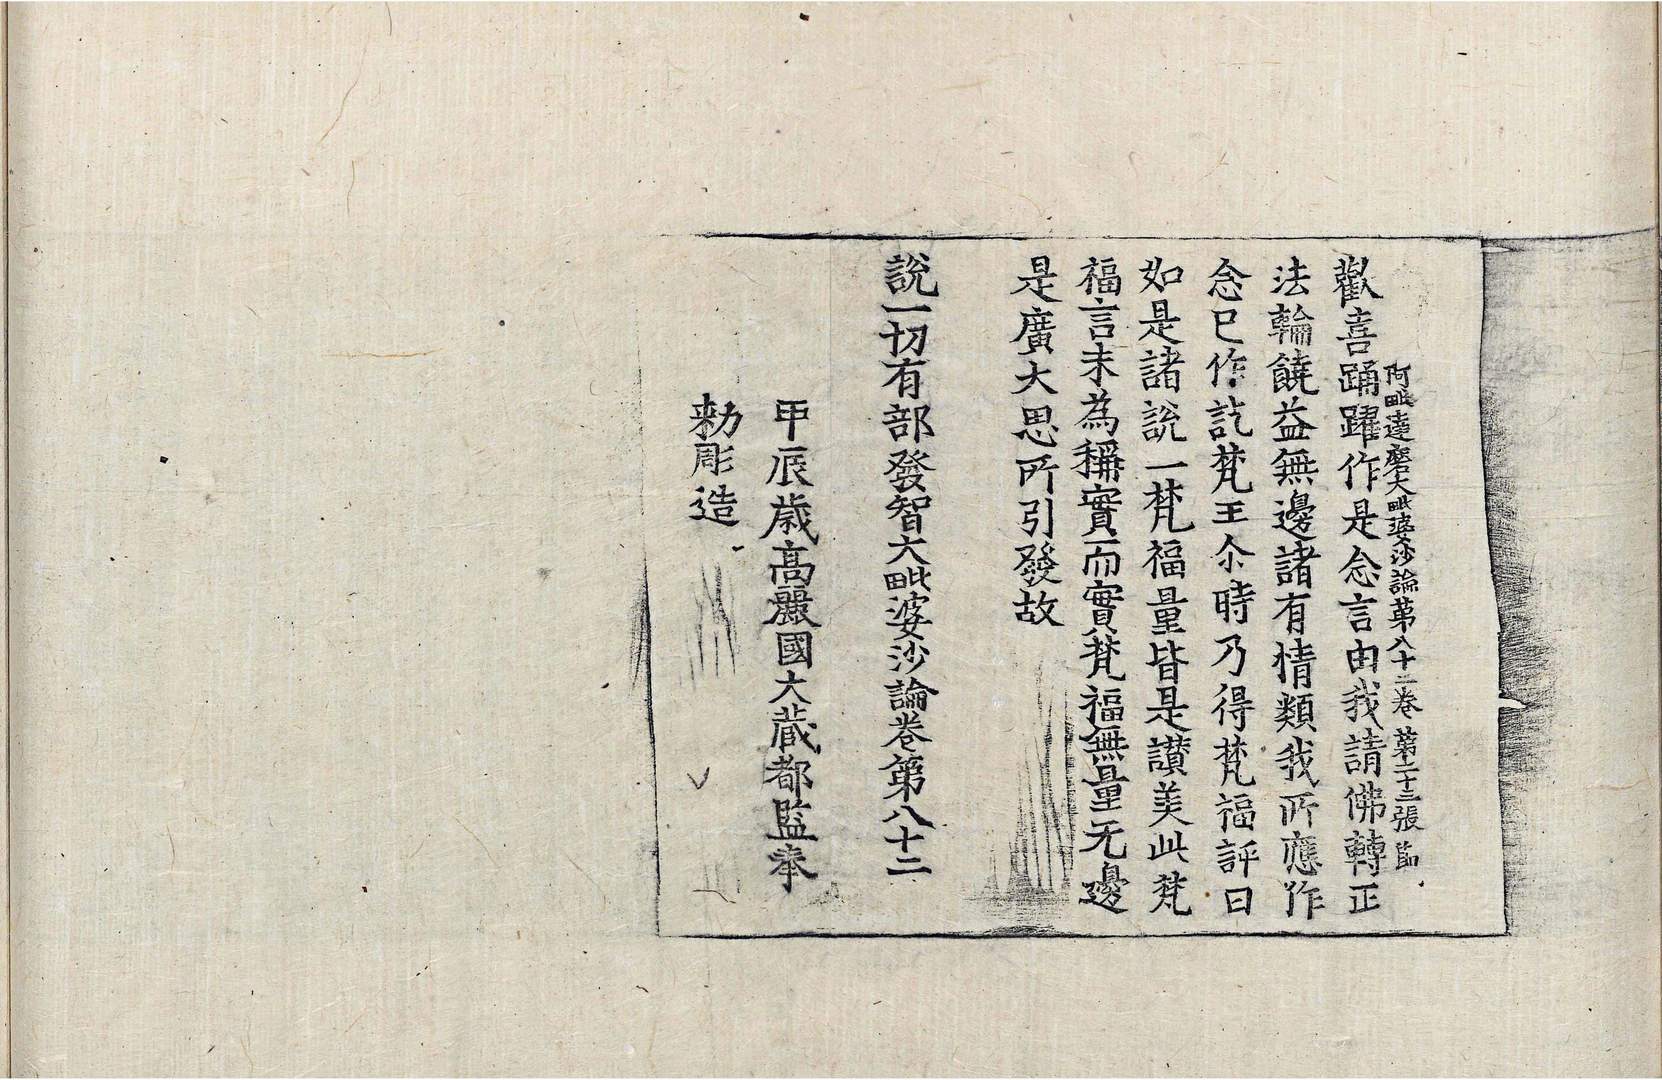 阿毗達磨大毗婆沙論第八十二卷 第二十三張 節
歡喜踊躍作是念言由我請佛轉正
法輪饒益無邊諸有情類我所應作
念已作訖梵王尒時乃得梵福評曰
如是諸說一梵福量皆是讃美此梵
福言未為稱實而實梵福無量无邊
是廣大思所引發故
說一切有部發智大毗婆沙論卷第八十二
甲辰歲高麗國大藏都監奉
勅彫造